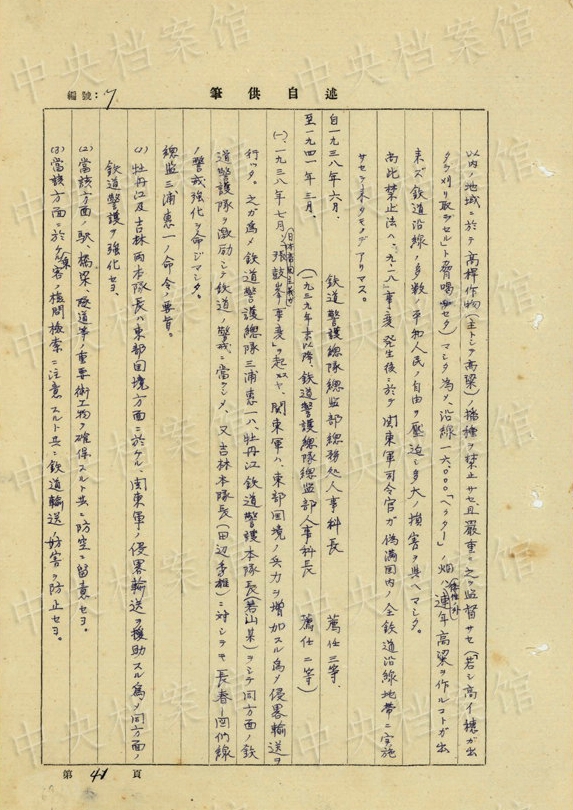 編號：7
筆供自述
以内ノ地域ニ於テ高稈作物(主トシテ高粱)ノ播種ヲ禁止サセ且厳重ニ之ヲ監督サセ(若シ高イ穂ガ出
タラ刈リ取ラセルト脅喝サセタ)マシタ為メ、沿線一六.〇〇〇「ヘクター」ノ畑ハ連年高粱ヲ作ルコトガ出
来ズ鉄道沿線ノ多数ノ平和人民ノ自由ヲ壓迫シ多大ノ損害ヲ與ヘマシタ。
尚此禁止法ハ、九.一八事変発生後ニ於テ関東軍司令官ガ偽満国内ノ全鉄道沿線地帯ニ実施
サセテ来タモノデアリマス。
自一九三八年六月、
至一九四一年三月、
鉄道警護總隊總監部總務処人事科長 薦任三等、
(一九三九年 以降、鉄道警護總隊總監部人事科長 薦任二等)
(一)、一九三八年七月 張鼓峯事変ヲ起スヤ、関東軍ハ、東部国境ノ兵力ヲ増加スル為メ侵略輸送ヲ
行ッタ。之ガ為メ鉄道警護總隊三浦恵一ハ、牡丹江鉄道警護本隊長(若山某)ヲシテ同方面ノ鉄
道警護隊ヲ激励シテ鉄道ノ警戒ニ當ラシメ、又吉林本隊長(田辺秀雄)ニ対シテモ長春―図們線
ノ警戒強化ヲ命ジマシタ。
總監三浦恵一ノ命令ノ要旨。
(1) 牡丹江及吉林両本隊長ハ東部国境方面ニ於ケル、関東軍ノ侵略輸送ヲ援助スル為メ同方面ノ
鉄道警護ヲ強化セヨ。
(2) 當該方面ノ駅、橋梁、隧道等ノ重要術工物ヲ確保スルト共ニ防空ニ留意セヨ。
(3) 當該方面ニ於ケル乗客ノ検問検索ニ注意スルト共ニ鉄道輸送ノ妨害ヲ防止セヨ。
第 41 頁
中央档案馆
中央档案馆
中央档案馆
中央档案馆